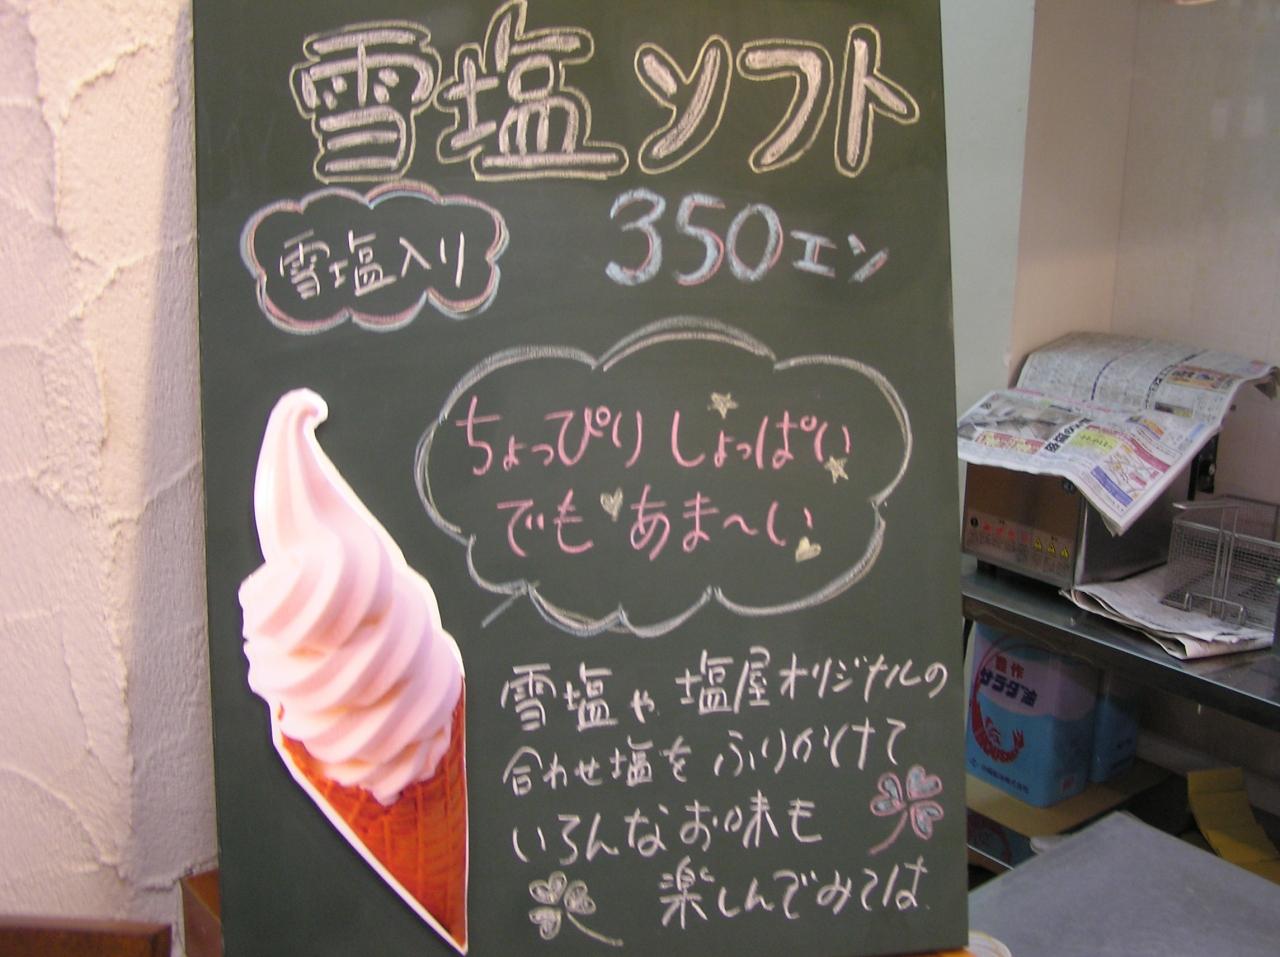 雪塩ソフト
雪塩入り
350エン
ちょっぴりしょっぱい
でもあま〜い
雪塩や塩屋オリジナルの
合わせ塩をふりかけて
いろんなお味も
楽しんでみては
サラダ油